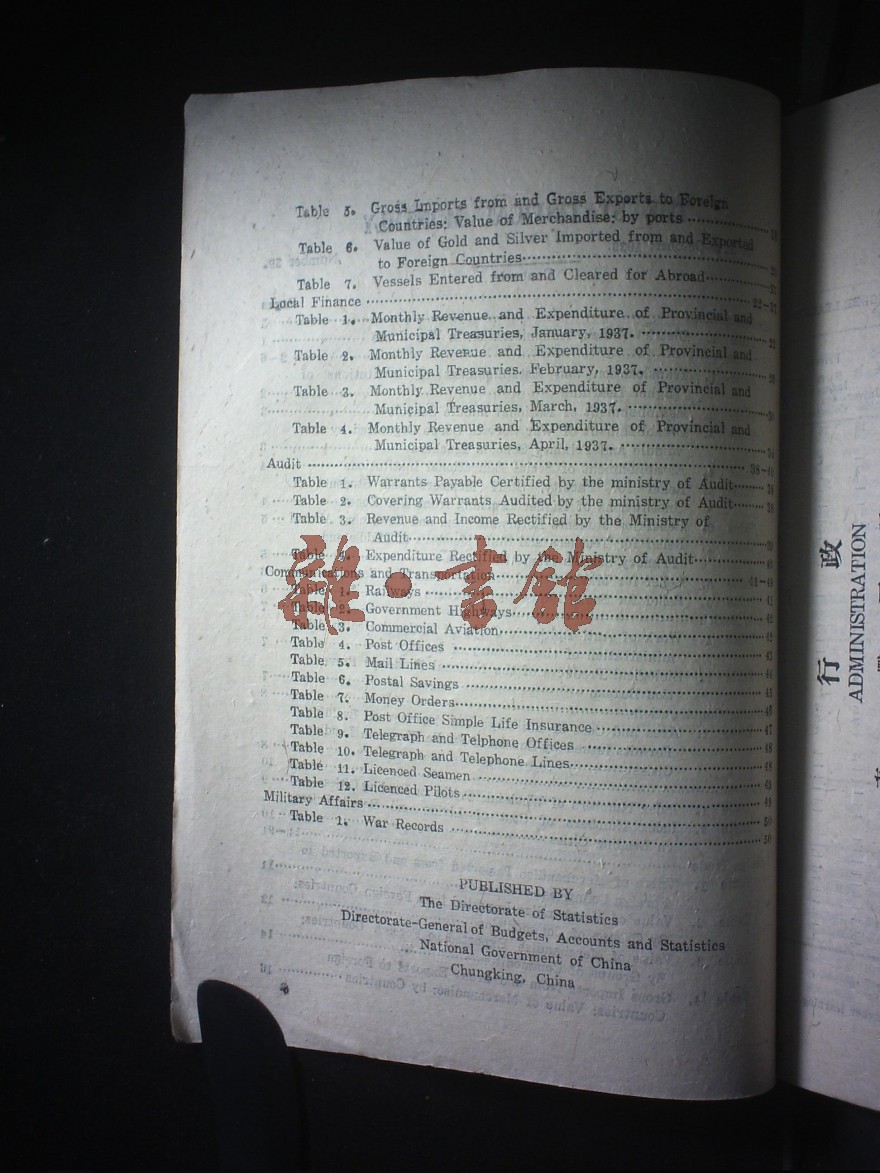 Table 5. Gross Imports from and Gross Exports to Foreign
Countries: Value of Merchandise: by ports
Table 6. Value of Gold and Silver Imported from and Exported
to Foreign Countries
Table 7. Vessels Entered from and Cleared for Abroad
Local Finance
Table 1. Monthly Revenue and Expenditure of Provincial and
Municipal Treasuries, January, 1937.
Table 2. Monthly Revenue and Expenditure of Provincial and
Municipal Treasuries. February, 1937.
Table 3. Monthly Revenue and Expenditure of Provincial and
Municipal Treasuries, March, 1937.
Table 4. Monthly Revenue and Expenditure of Provincial and
Municipal Treasuries, April, 1937.
Audit
Table 1. Warrants Payable Certified by the ministry of Audit
Table 2. Covering Warrants Audited by the ministry of Audit
Table 3. Revenue and Income Rectified by the Ministry of
Audit
Table 4. Expenditure Rectified by the Ministry of Audit
Communications and Transportation
Table 1. Railways
Table 2. Government Highways
Table 3. Commercial Aviation
Table 4. Post Offices 43
Table 5. Mail Lines 44
Table 6. Postal Savings 45
Table 7. Money Orders 46
Table 8. Post Office Simple Life Insurance 47
Table 9. Telegraph and Telphone Offices 48
Table 10. Telegraph and Telephone Lines 48
Table 11. Licenced Seamen 49
Table 12. Licenced Pilots 49
Military Affairs 50
Table 1. War Records 50
PUBLISHED BY
The Directorate of Statistics
Directorate-General of Budgets, Accounts and Statistics
National Government of China
Chungking, China
行政
ADMINISTRATION
雜·書館